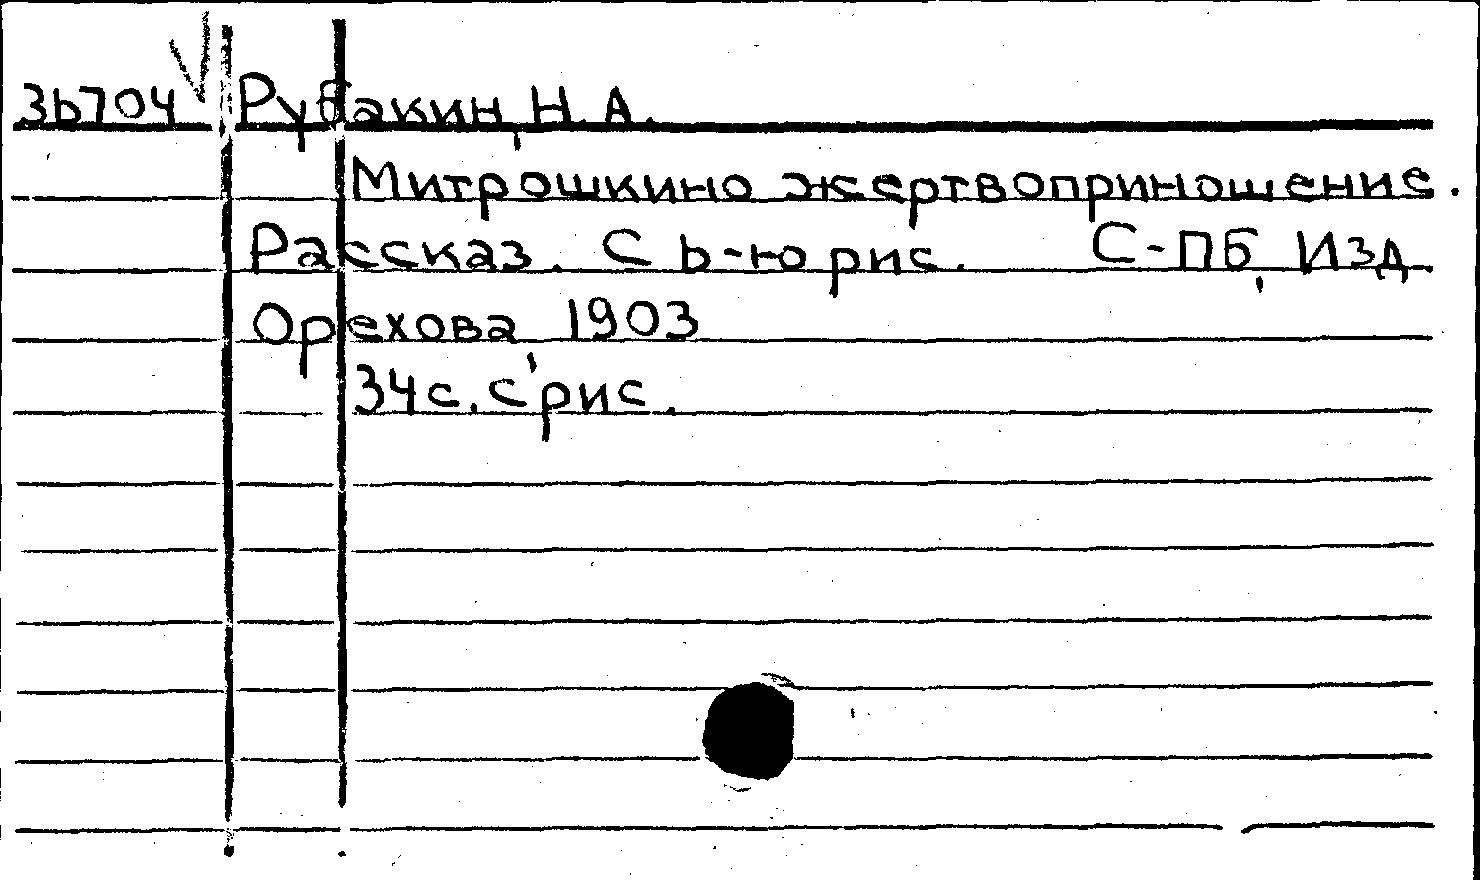 3b704 Рубакин, Н. А.
Митрошкино жертвоприношение.
Рассказ. С ь-ю рис. С-ПБ, Изд
Орехова, 1903
34с. с рис.